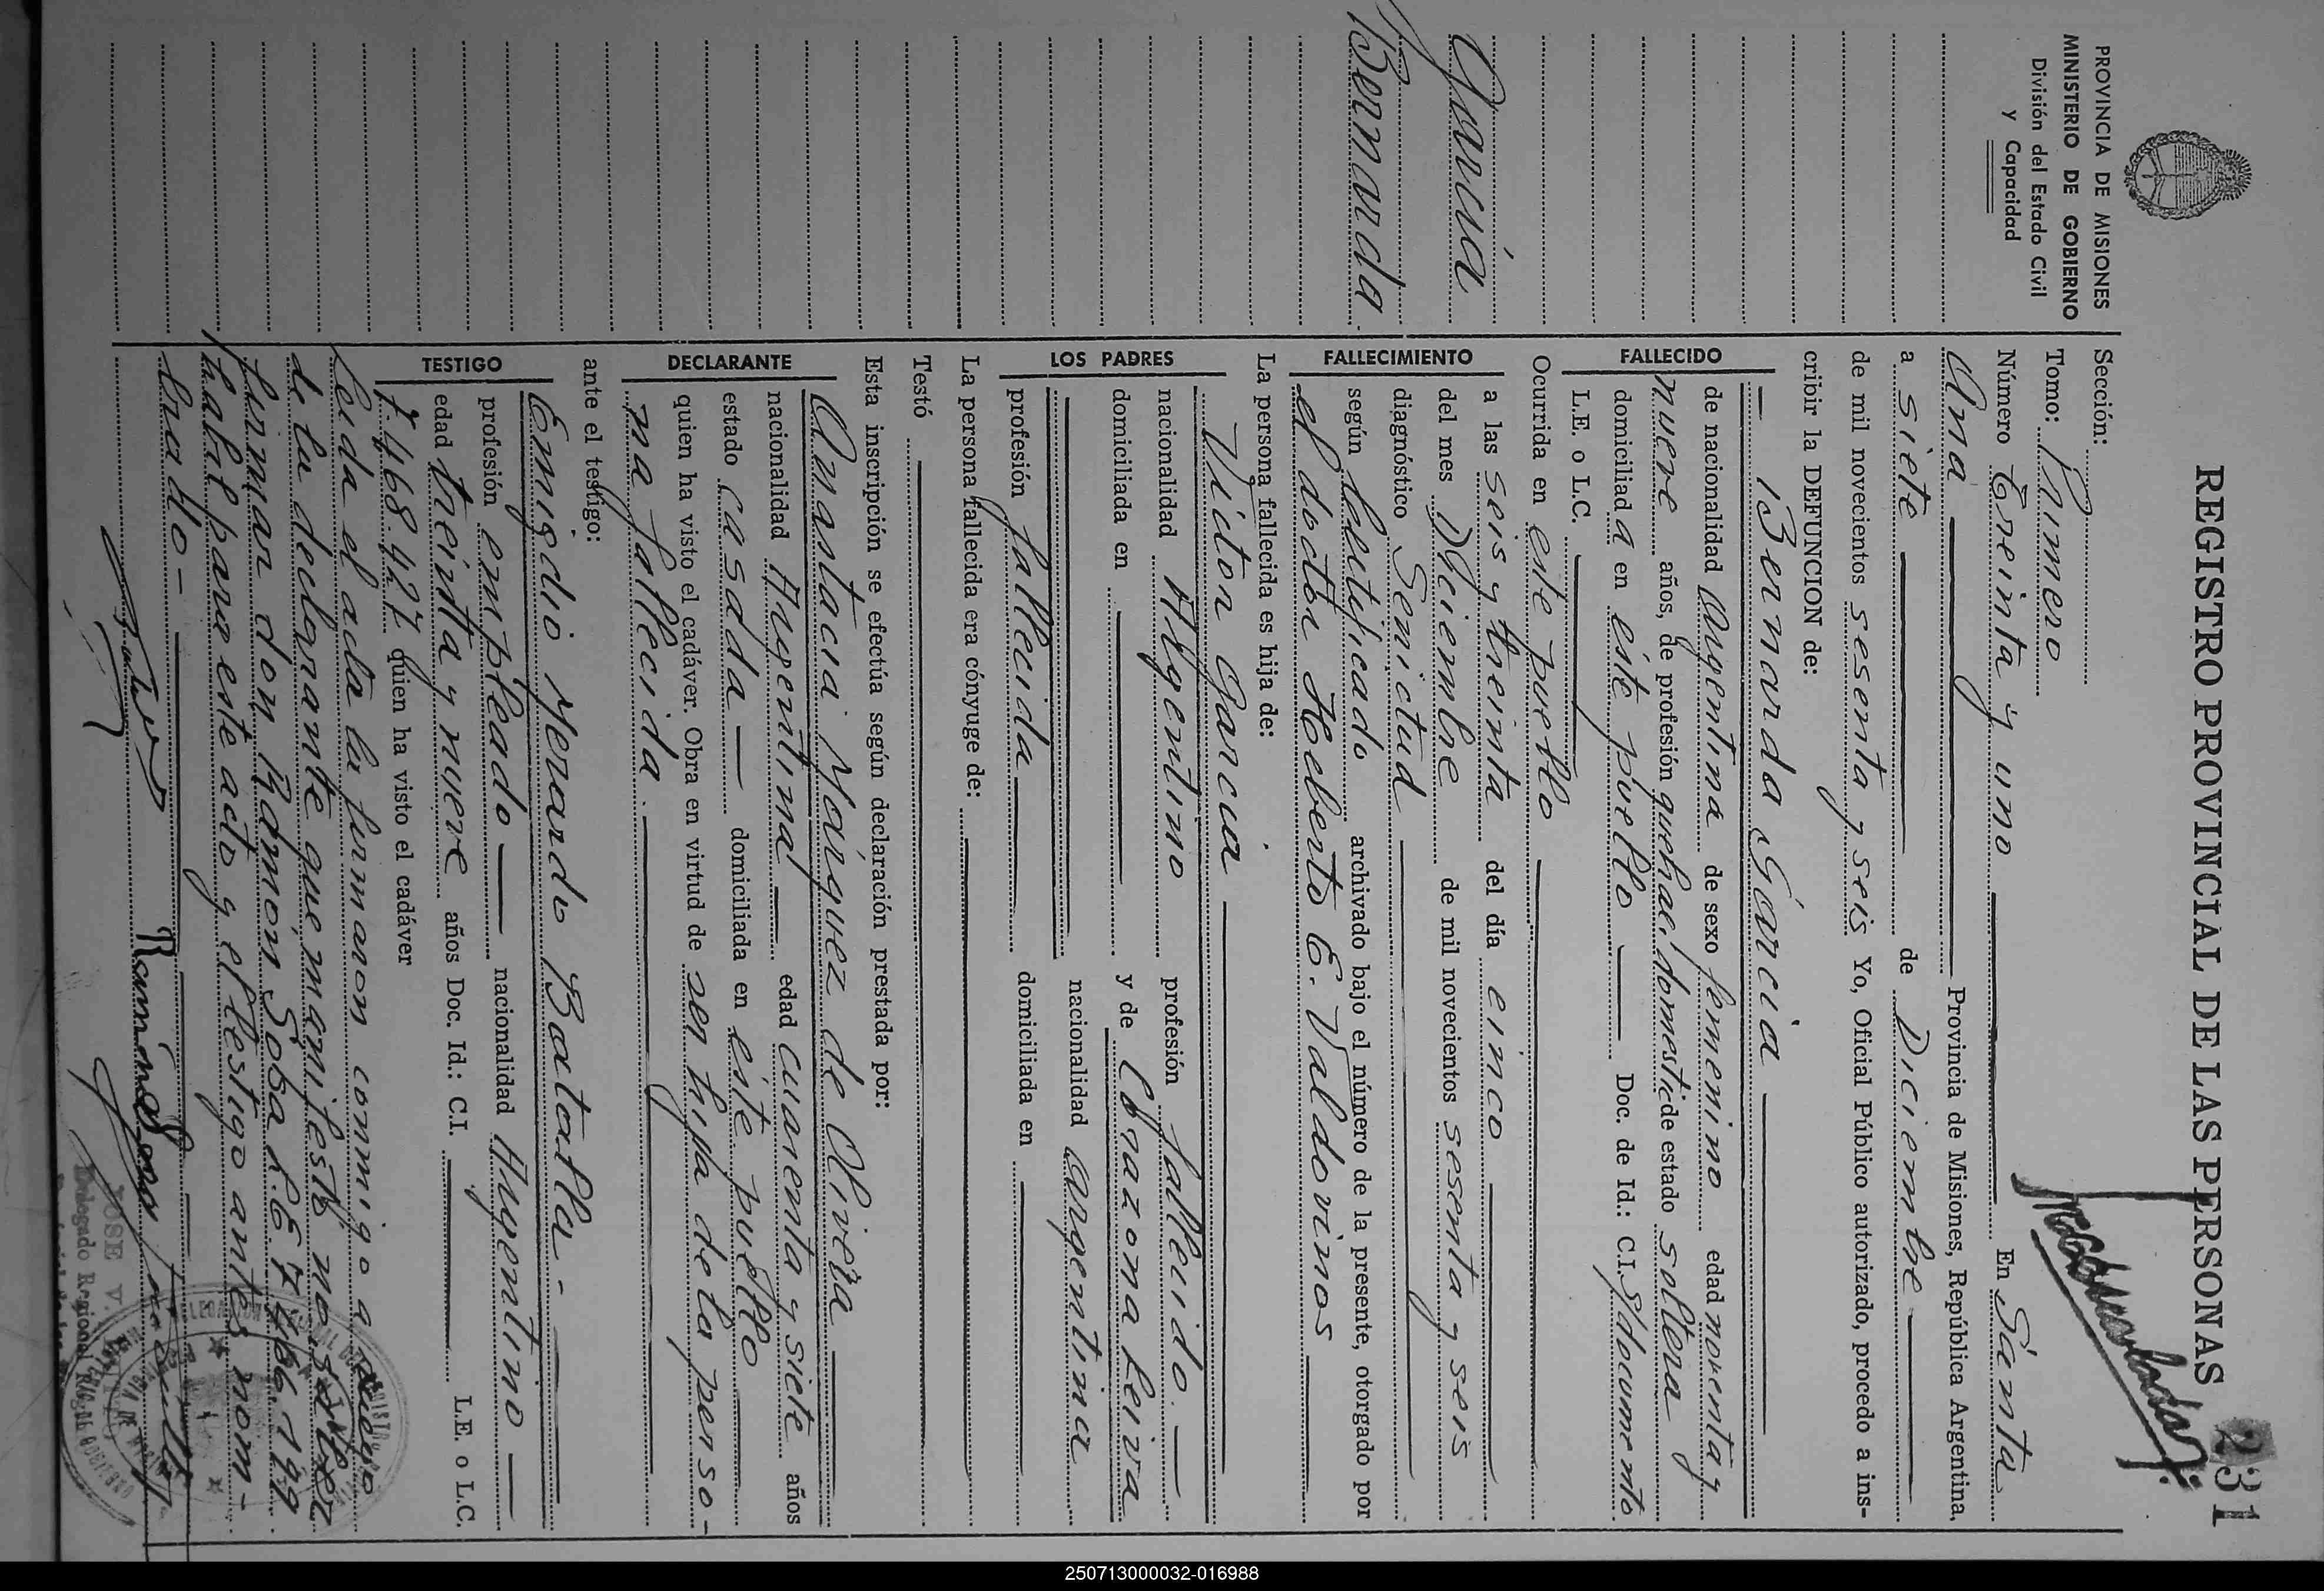 REGISTRO PROVINCIAL DE LAS PERSONAS
231
PROVINCIA DE MISIONES
MINISTERIO DE GOBIERNO
División del Estado Civil
y Capacidad
García
Bernarda
Sección:
Tomo: Primero
Número Treinta y uno En Santa
Ana Provincia de Misiones, República Argentina,
a siete de Diciembre
de mil novecientos sesenta y seis Yo, Oficial Público autorizado, procedo a ins-
cribir la DEFUNCION de:
FALLECIDO
Bernarda García
de nacionalidad Argentina de sexo femenino edad noventa y
nueve años, de profesión quehac. domestic de estado soltera
domiciliada en éste pueblo Doc. de Id.: C.I. S/documento
L.E. o L.C.
FALLECIMIENTO
Ocurrida en este pueblo
a las seis y treinta del día cinco
del mes Diciembre de mil novecientos sesenta y seis
diagnóstico Senictud
según certificado archivado bajo el número de la presente, otorgado por
el doctor Heberto E. Valdovinos
La persona fallecida es hija de:
LOS PADRES
Victor Garcia
nacionalidad Argentino profesión fallecido.
domiciliada en y de Corazona Leiva
nacionalidad Argentina
profesión fallecida domiciliada en
La persona fallecida era cónyuge de:
Testó
Esta inscripción se efectúa según declaración prestada por:
DECLARANTE
Anastacia Márquez de Olivera
nacionalidad Argentina edad cuarenta y siete años
estado casada domiciliada en éste pueblo
quien ha visto el cadáver. Obra en virtud de ser hija de la perso-
na fallecida.
ante el testigo:
TESTIGO
Emigdio Merardo Batalla.-
profesión empleado nacionalidad Argentino
edad treinta y nueve años Doc. Id.: C.I. L.E. o L.C.
7.468.427 quien ha visto el cadáver
Leida el acta la firmaron conmigo a ruego
de la declarante que manifestó no saber
firmar don Ramón Sosa L.E. 7.466.199
habil para este acto y el testigo antes nom-
brado-
Ramón Sosa
JOSE V.
Delegado Regional
250713000032-016988